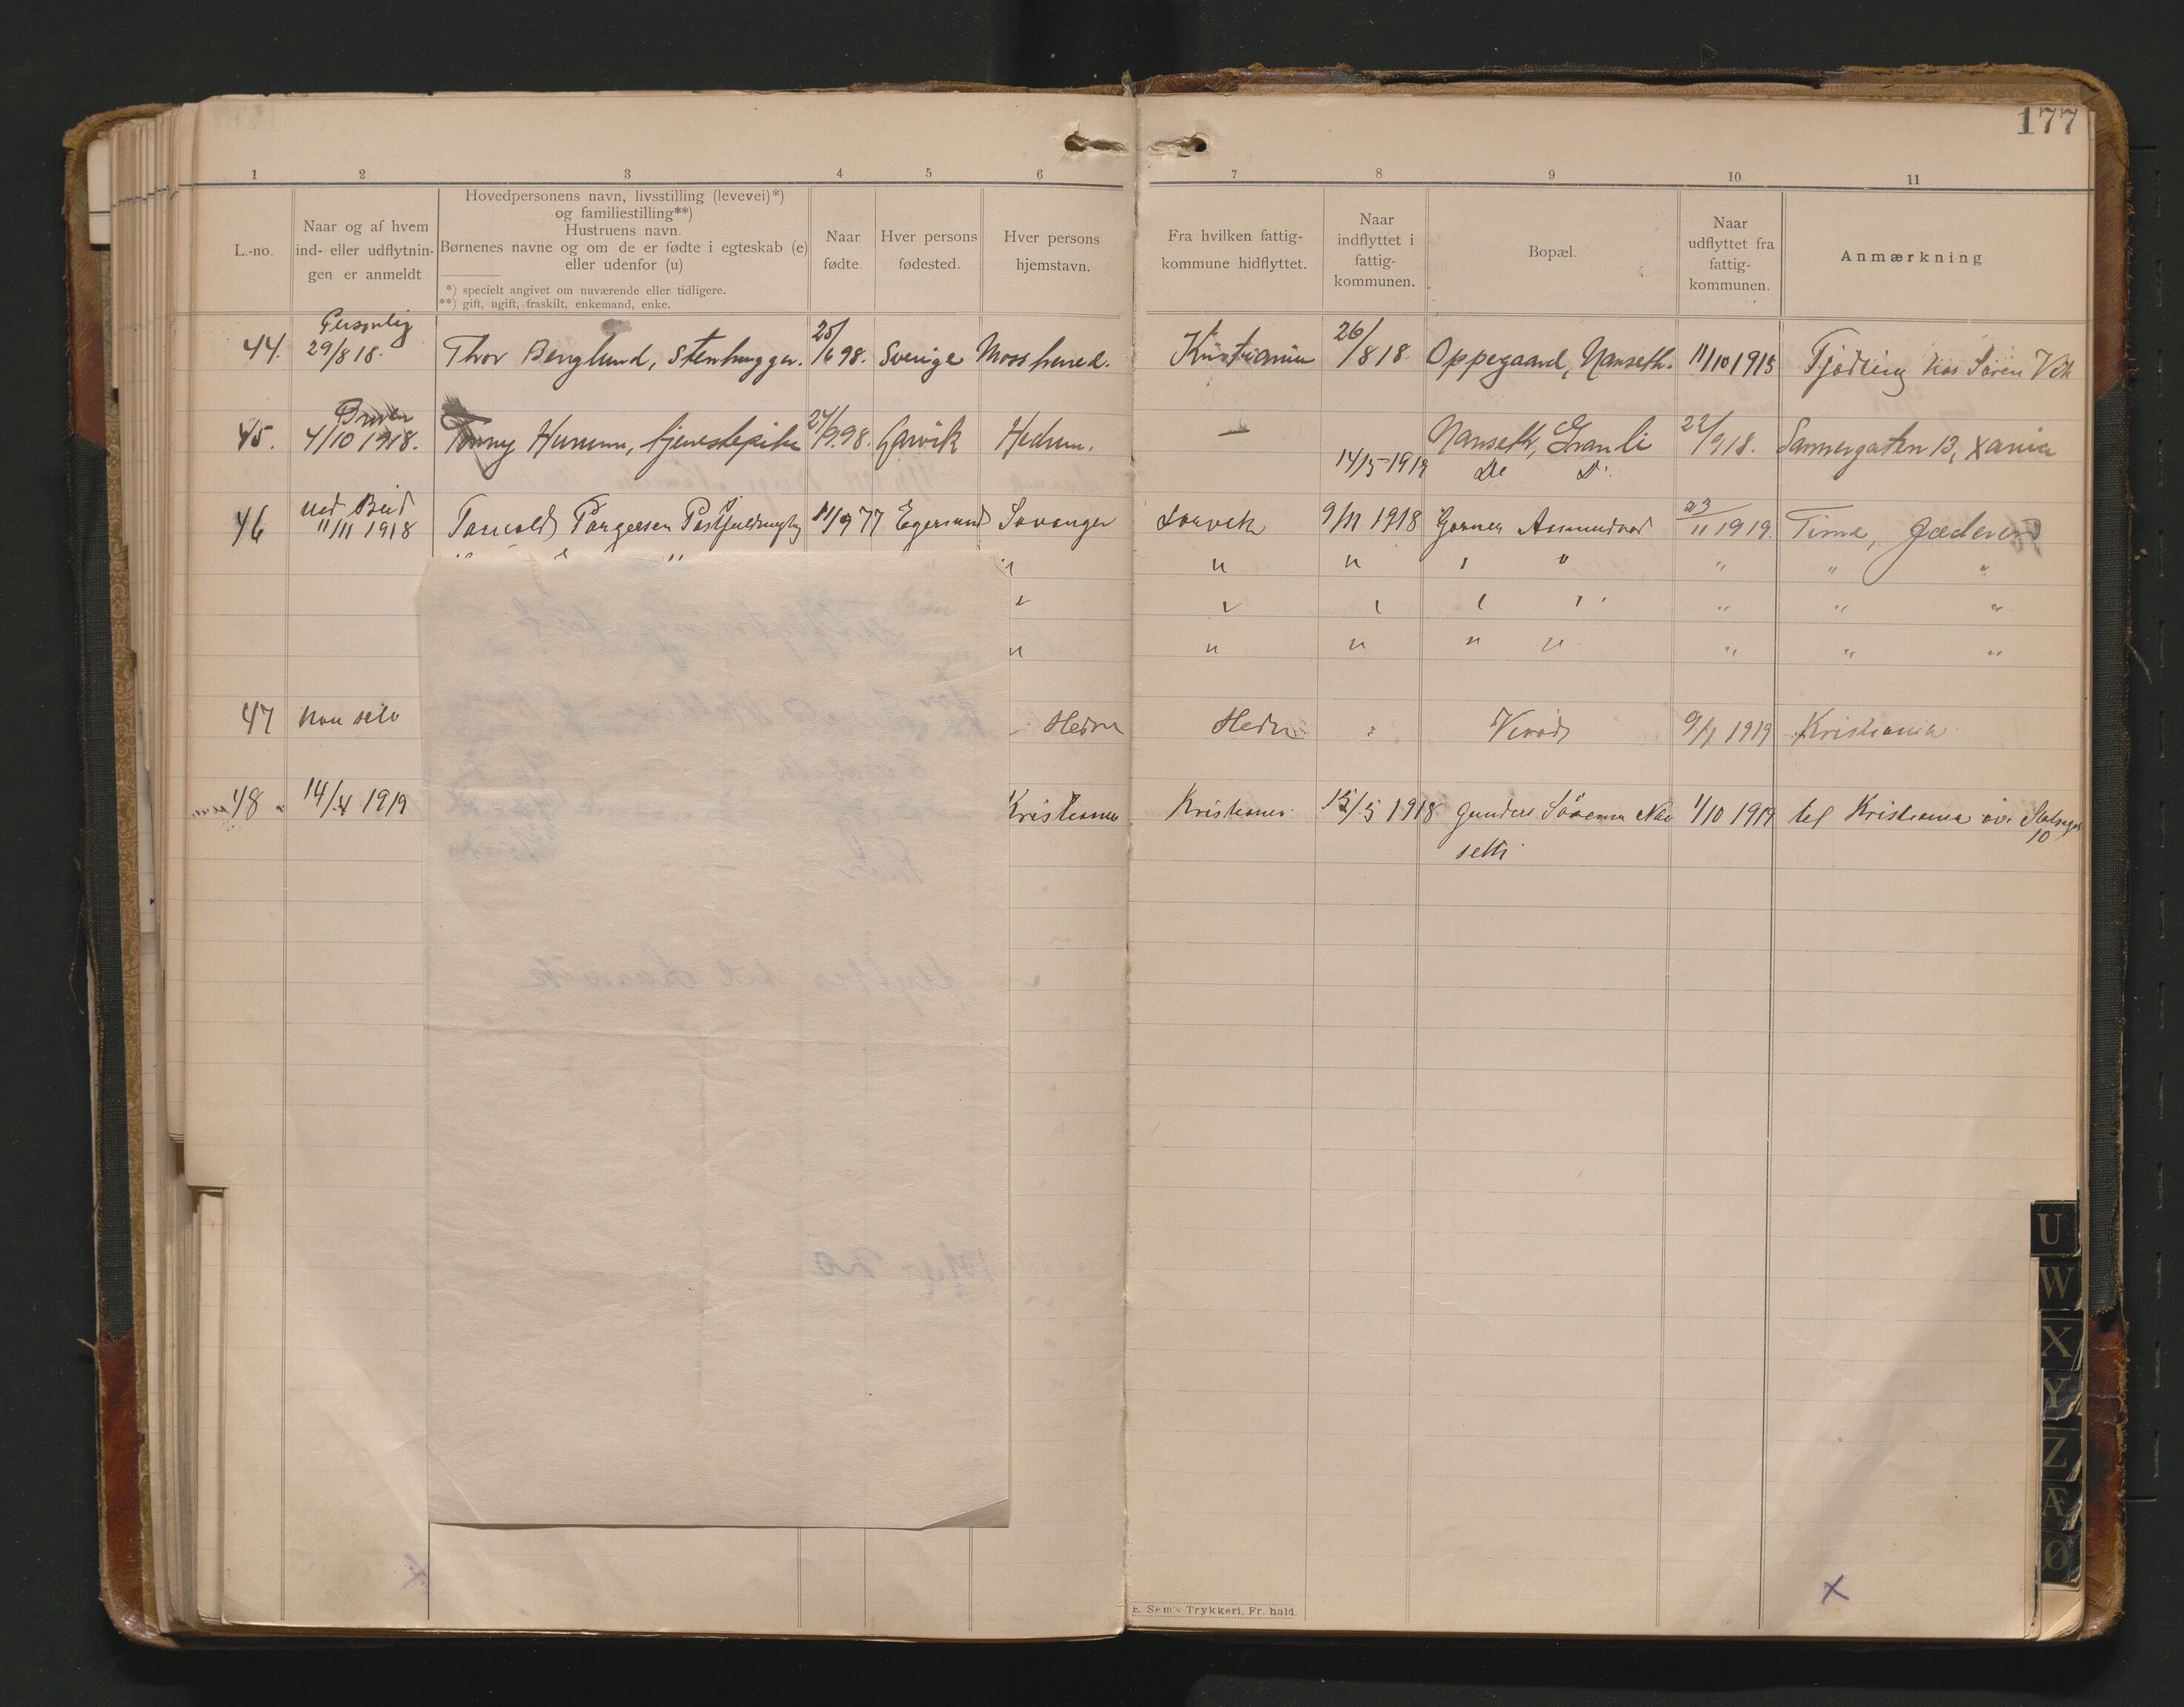 177
1 2 3 4 5 6 7 8 9 10 11
L.-no.
Naar og af hvem
ind- eller udflytnin-
gen er anmeldt
Hovedpersonens navn, livsstilling (levevei)*)
og familiestilling**)
Hustruens navn.
Børnenes navne og om de er fødte i egteskab (e)
eller udenfor (u)
*) specielt angivet om nuværende eller tidligere.
**) gift, ugift, fraskilt, enkemand, enke.
Naar
fødte.
Hver persons
fødested.
Hver persons
hjemstavn.
Fra hvilken fattig-
kommune hidflyttet.
Naar
indflyttet i
fattig-
kommunen.
Bopæl.
Naar
udflyttet fra
fattig-
kommunen.
Anmærkning
Personlig
44. 29/8 18. Thor Berglund, Stenhugger. 25/6 98. Sverige Moss herred. Kristiania 26/8 18. Oppegaard, Nanseth. 11/10 1918 Tjodling hos Søren Vik
45. 4/10 1918. Hurum, tjenestepike 24/9. 98. Larvik Hedrum. — Nanseth, Granli 22/9 18. Sannergaten 13, Xania
14/5-1919 Do Do
ved Bud
46 11/11 1918 Torgersen 11/9 77 Egersund Stavanger Larvik 9/11 1918 23/11 1919. Time, Jæderen
" " " " " " "
" " " " " " "
" " " " " " " "
47 Hedru Hedru 9/1 1919 Kristiania
48 14/4 1919 Kristiania Kristiania 15/5 1918 Gunder Nan 1/10 1919 til Kristiania
seth 10
flyttes til Larvik
E. Sem's Trykkeri, Fr.hald.
U
W
X
Y
Z
Æ
Ø